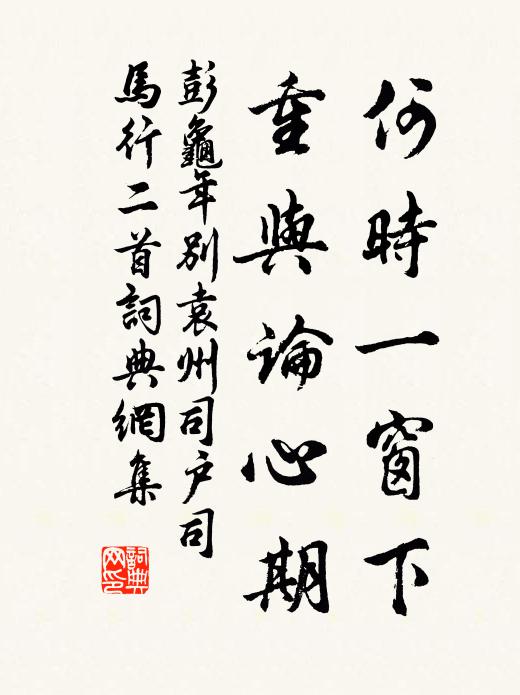 何時一窗下
重與論心期
彭龜年別袁州司户司
馬行二首詞典網集
詞典
网印